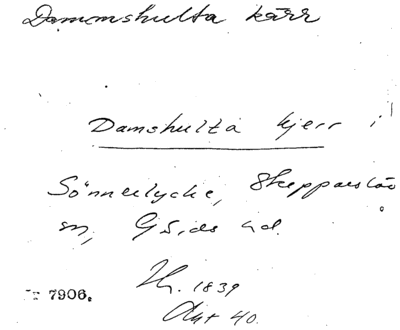 Dammshulta kärr
Damshulta kjerr i
Sönnerlycke, Skepparslöv
sn, Gärds hd.
1839
Akt 40.
Nr 7906.